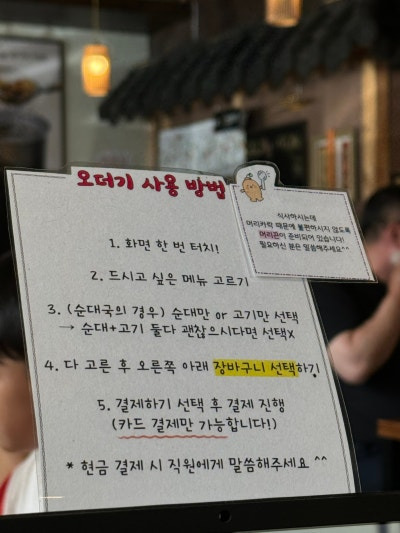 오더기 사용 방법
1. 화면 한 번 터치!
2. 드시고 싶은 메뉴 고르기
3. (순대국의 경우) 순대만 or 고기만 선택
→ 순대+고기 둘다 괜찮으시다면 선택X
4. 다 고른 후 오른쪽 아래 장바구니 선택하기!
5. 결제하기 선택 후 결제 진행
(카드 결제만 가능합니다!)
* 현금 결제 시 직원에게 말씀해주세요 ^^
식사하시는데
머리카락 때문에 불편하시지 않도록
머리끈이 준비되어 있습니다!
필요하신 분은 말씀해주세요^^